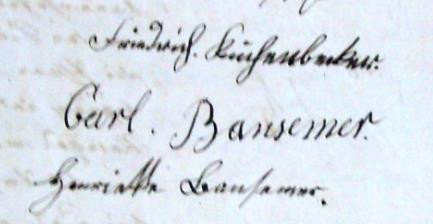 Friedrich. Küchenbecker.
Carl. Bansemer.
Henriette Bansemer.